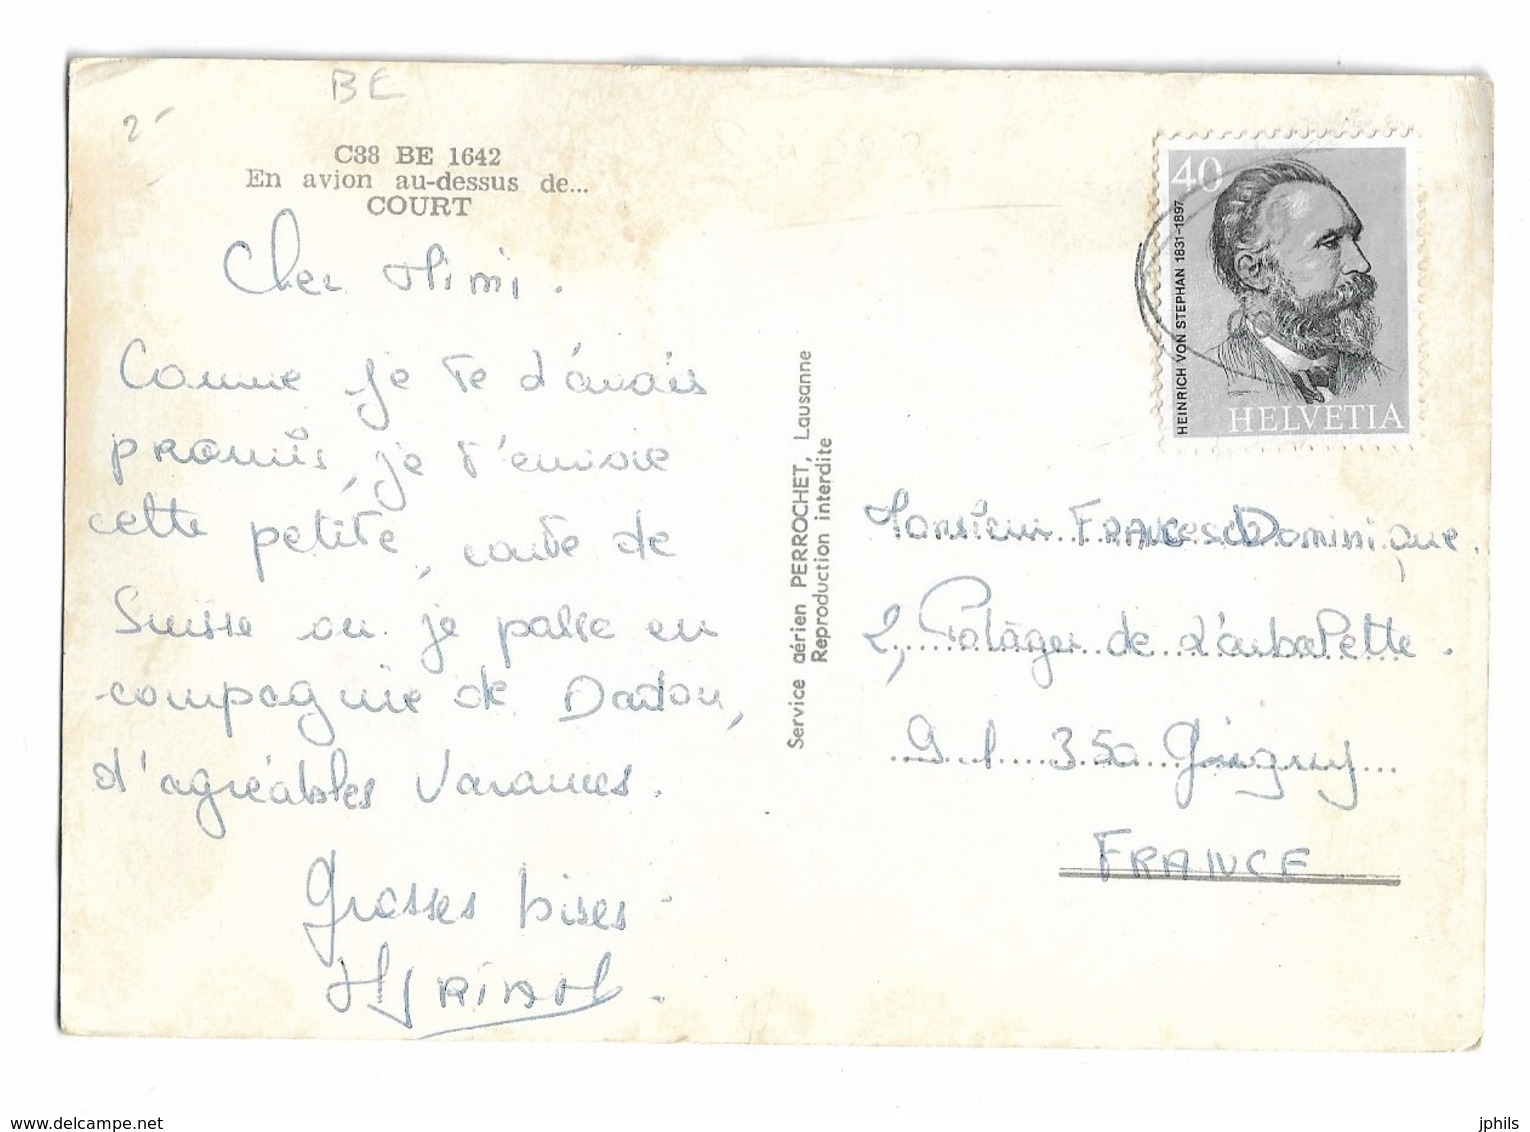 BE
2-
C38 BE 1642
En avion au-dessus de...
COURT
Cher Mimi.
Comme je te d'avais
promis, je t'envoie
cette petite, carte de
Suisse ou je passe en
compagnie de Dadou,
d'agréables Vacances.
Grosses bises
Myriam.
Service aérien PERROCHET, Lausanne
Reproduction interdite
40
HEINRICH VON STEPHAN 1831-1897
HELVETIA
Monsieur Dominique.
2, Potager de L'arbalette.
91 350 Grigny
FRANCE
www.delcampe.net
jphils